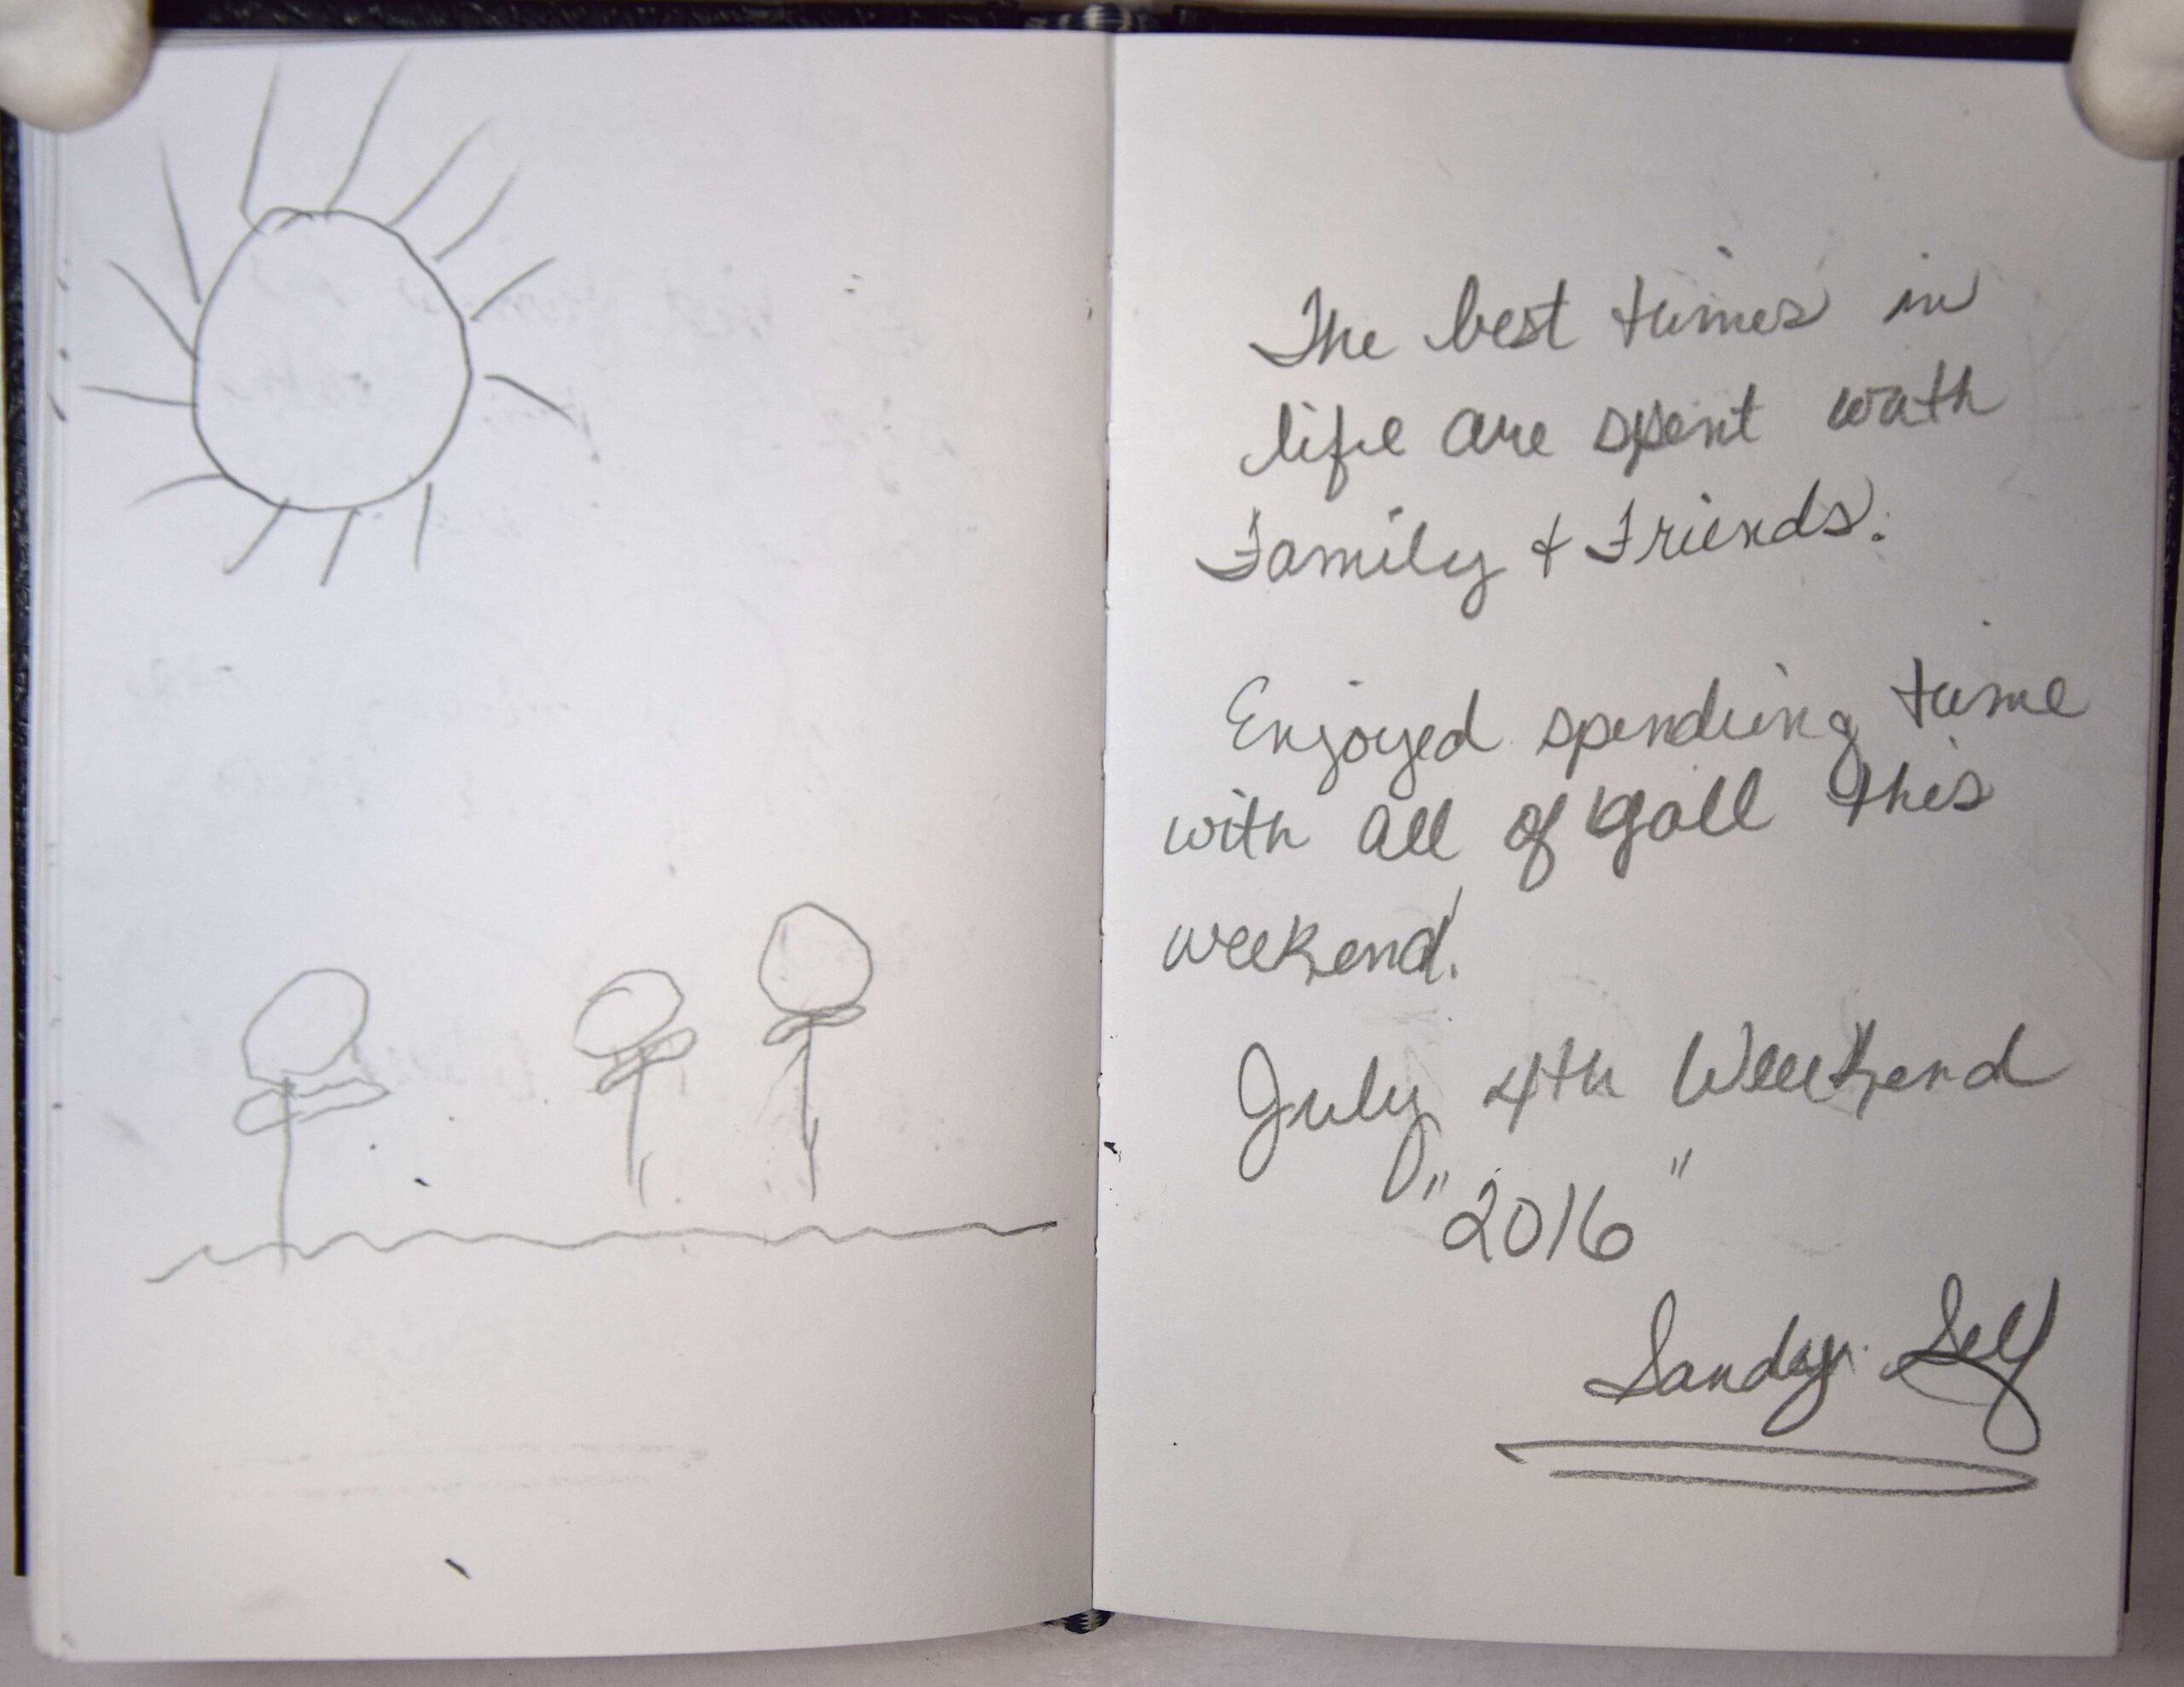 The best times in
life are spent with
Family + Friends.
Enjoyed spending time
with all of yall this
weekend.
July 4th Weekend
"2016"
Sandy Self